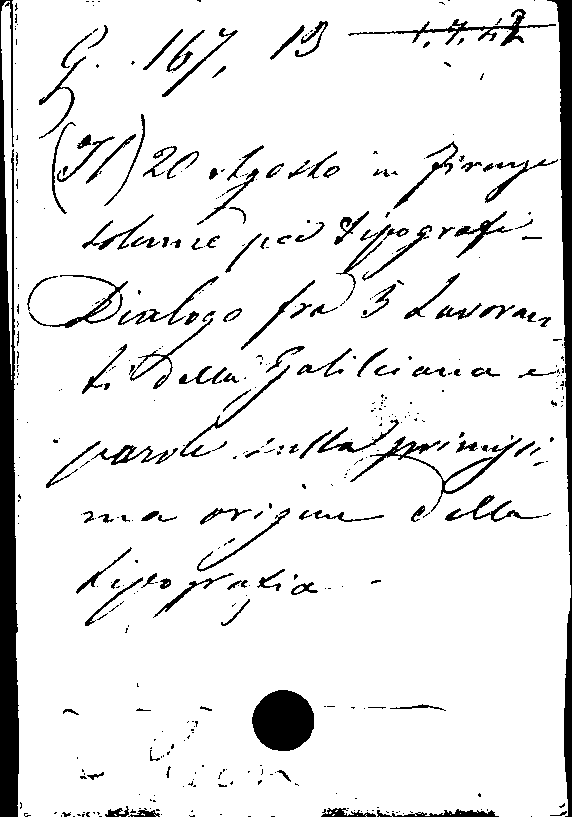 G. 167, 13 1.7.42
(Il) 20 Agosto in Firenze
solenne pei tipografi -
Dialogo fra 3 Lavoran-
ti della Galileiana e
parole sulla primissi-
ma origine della
tipografia -